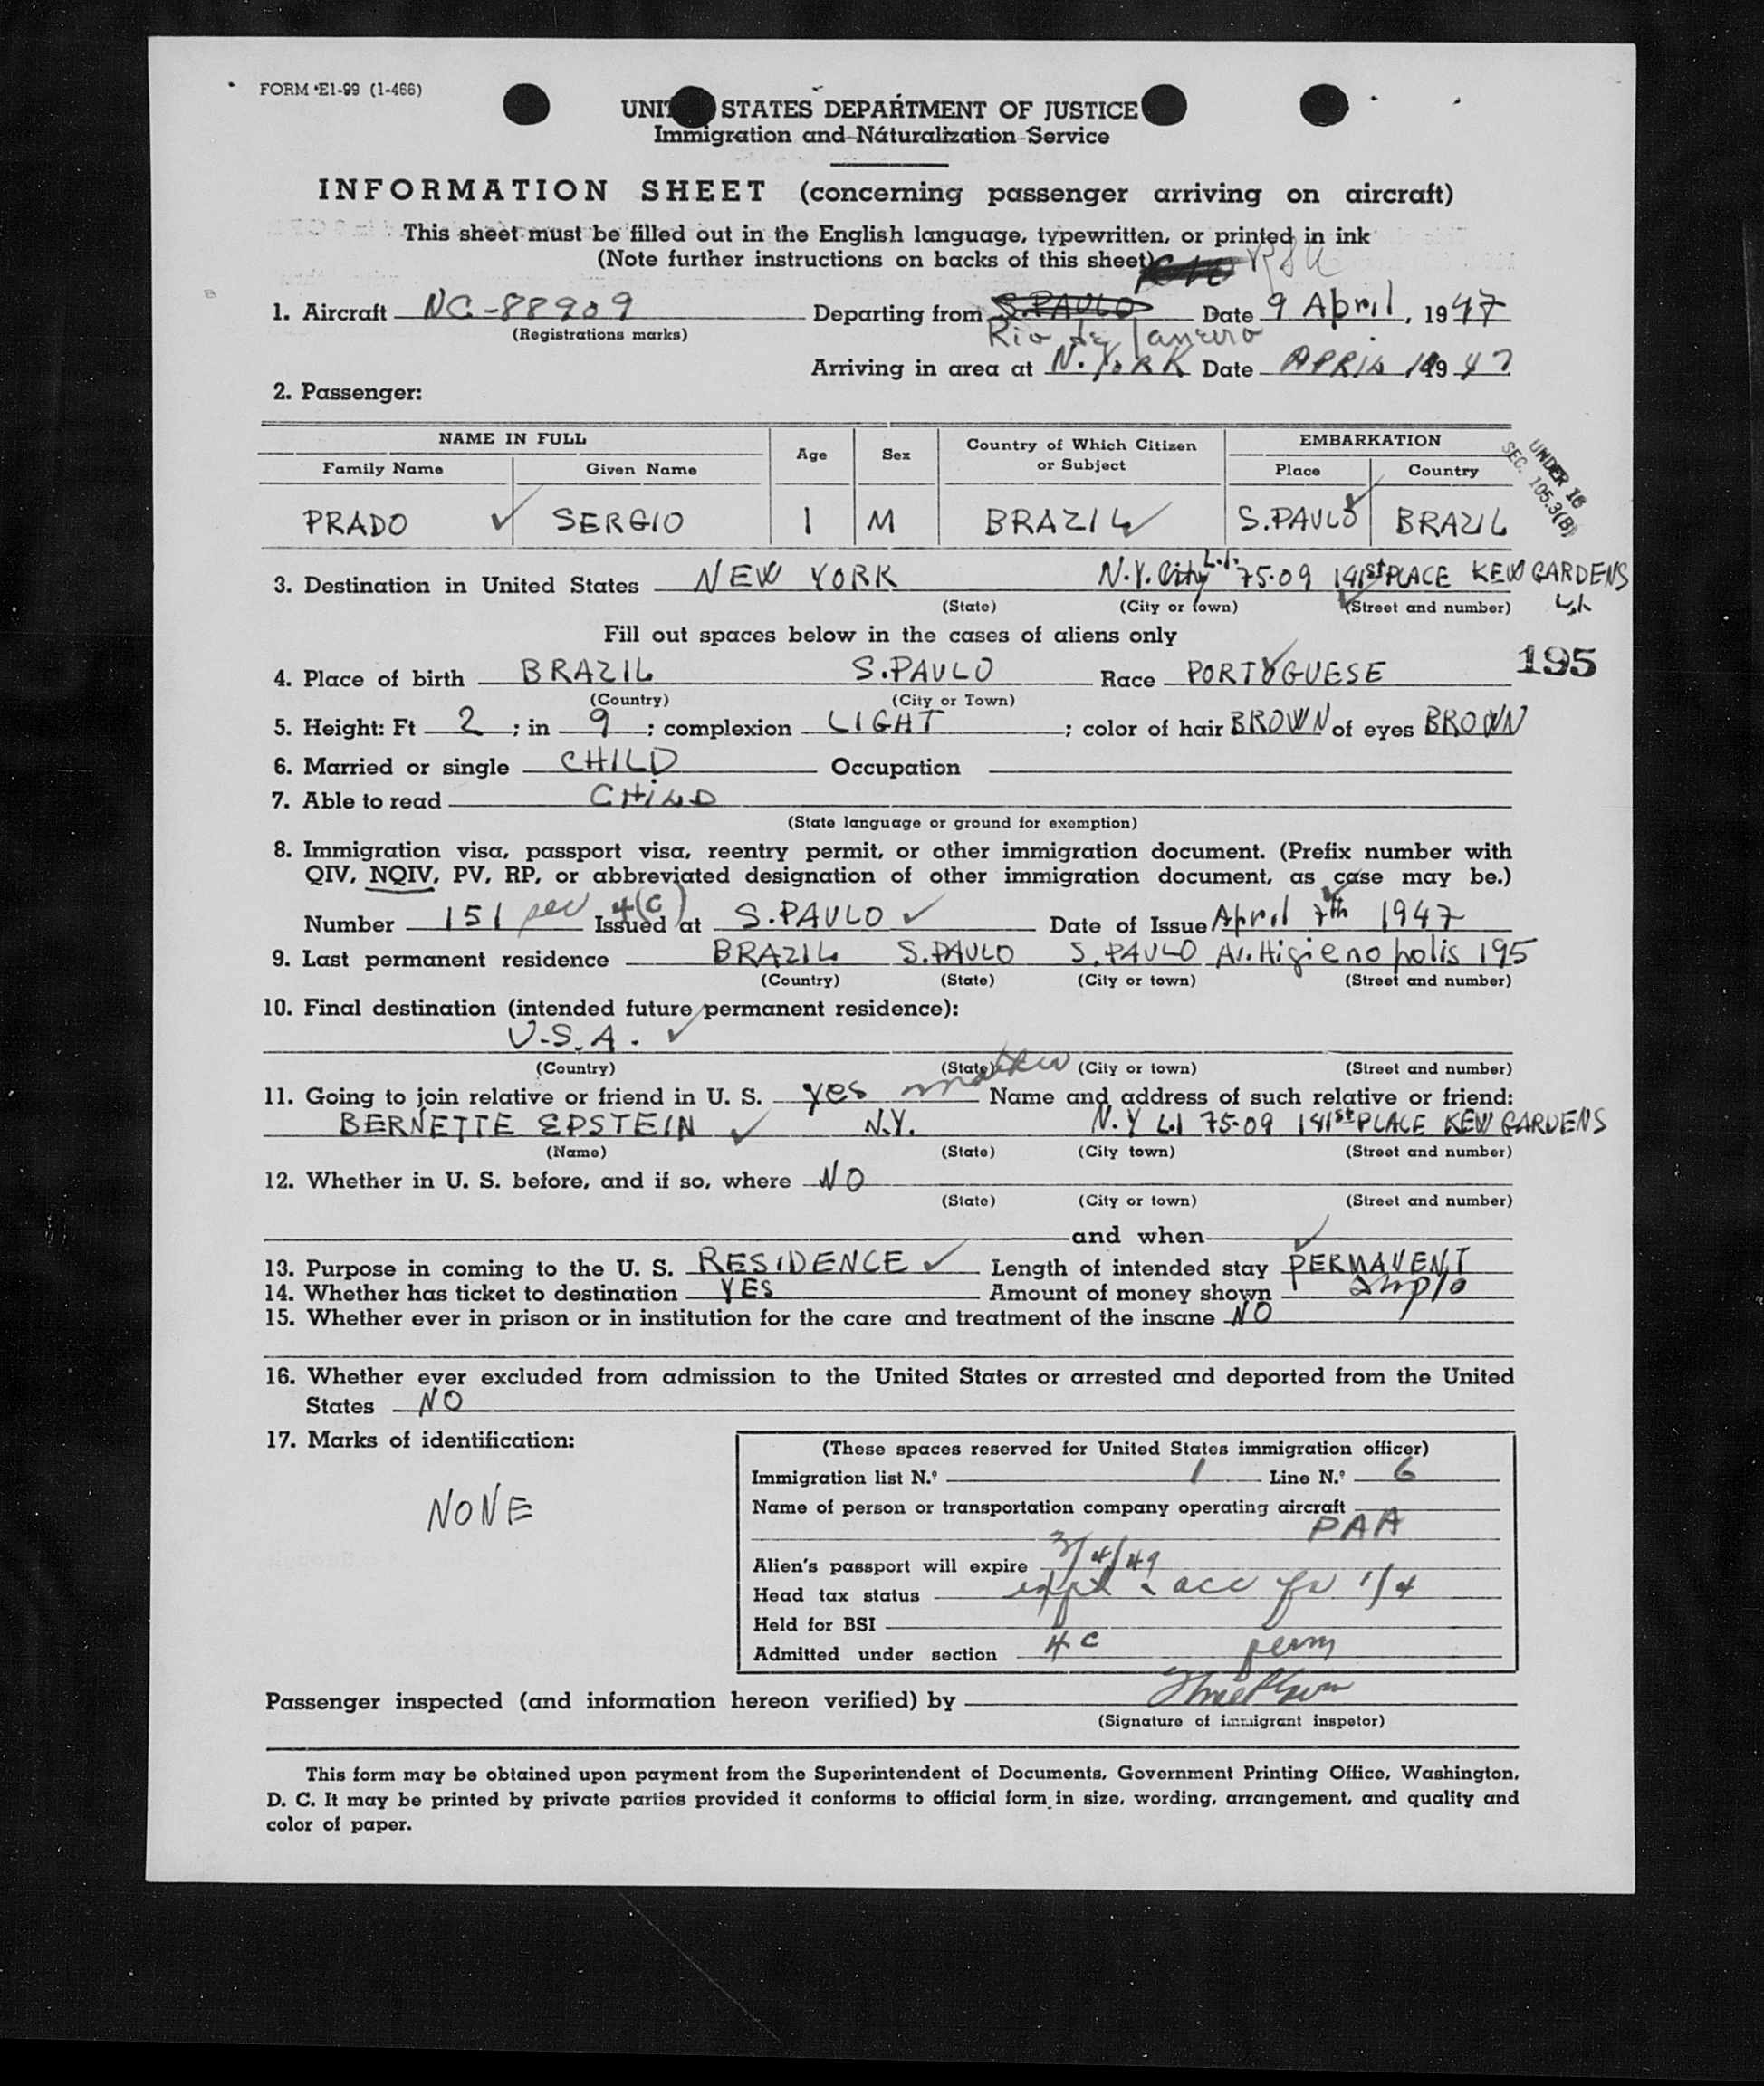 FORM E1-99 (1-466)
UNITED STATES DEPARTMENT OF JUSTICE
Immigration and Naturalization Service
INFORMATION SHEET (concerning passenger arriving on aircraft)
This sheet must be filled out in the English language, typewritten, or printed in ink
(Note further instructions on backs of this sheet)
1. Aircraft NC-88909 Departing from S.PAULO Date 9 April, 1947
(Registrations marks) Rio de Janeiro
Arriving in area at N.YORK Date APRIL 1947
2. Passenger:
NAME IN FULL Age Sex Country of Which Citizen or Subject EMBARKATION
Family Name Given Name Place Country
UNDER 16
SEC. 105.3(B)
PRADO SERGIO 1 M BRAZIL S.PAULO BRAZIL
3. Destination in United States NEW YORK N.Y. City L.I. 75-09 141st PLACE KEW GARDENS
(State) (City or town) (Street and number) L.I.
Fill out spaces below in the cases of aliens only
195
4. Place of birth BRAZIL S.PAULO Race PORTUGUESE
(Country) (City or Town)
5. Height: Ft 2; in 9; complexion LIGHT; color of hair BROWN of eyes BROWN
6. Married or single CHILD Occupation
7. Able to read CHILD
(State language or ground for exemption)
8. Immigration visa, passport visa, reentry permit, or other immigration document. (Prefix number with
QIV, NQIV, PV, RP, or abbreviated designation of other immigration document, as case may be.)
Number 151 4(C) Issued at S.PAULO Date of Issue April 7th 1947
9. Last permanent residence BRAZIL S.PAULO S.PAULO Av. Higienopolis 195
(Country) (State) (City or town) (Street and number)
10. Final destination (intended future permanent residence):
U.S.A.
(Country) (State) (City or town) (Street and number)
11. Going to join relative or friend in U. S. yes mother Name and address of such relative or friend:
BERNETTE EPSTEIN N.Y. N.Y L.I 75-09 141st PLACE KEW GARDENS
(Name) (State) (City town) (Street and number)
12. Whether in U. S. before, and if so, where NO
(State) (City or town) (Street and number)
and when
13. Purpose in coming to the U. S. RESIDENCE Length of intended stay PERMANENT
14. Whether has ticket to destination YES Amount of money shown
15. Whether ever in prison or in institution for the care and treatment of the insane NO
16. Whether ever excluded from admission to the United States or arrested and deported from the United
States NO
17. Marks of identification:
NONE
(These spaces reserved for United States immigration officer)
Immigration list N.º 1 Line N.º 6
Name of person or transportation company operating aircraft
PAA
Alien's passport will expire 3/4/49
Head tax status acc 1/4
Held for BSI
Admitted under section 4C perm
Passenger inspected (and information hereon verified) by
(Signature of immigrant inspetor)
This form may be obtained upon payment from the Superintendent of Documents, Government Printing Office, Washington,
D. C. It may be printed by private parties provided it conforms to official form in size, wording, arrangement, and quality and
color of paper.